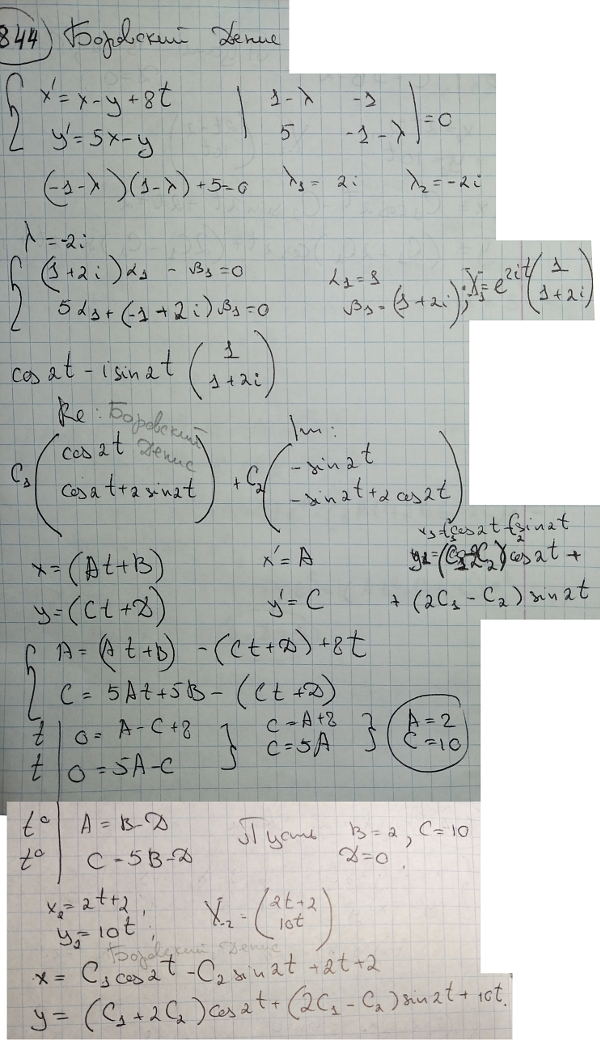 844 Боровский Денис
{ x' = x - y + 8t    | 1-λ   -1 |
{ y' = 5x - y    | 5   -1-λ | = 0
(-1-λ)(1-λ)+5=0   λ₁ = 2i   λ₂ = -2i
λ = -2i
{ (1+2i)α₁ - β₁ = 0   α₁ = 1
{ 5α₁ + (-1+2i)β₁ = 0   β₁ = (1+2i); X₁ = e^{2it} (1 / 1+2i)
cos2t - i sin2t (1 / 1+2i)
Re: Боровский Денис   Im:
C₁ (cos2t / cos2t + 2sin2t) + C₂ (-sin2t / -sin2t + 2cos2t)
x = (At+B)   x' = A   x₁ = C₁cos2t - C₂sin2t
y = (Ct+D)   y' = C   y₁ = (C₁+2C₂)cos2t +
+ (2C₁ - C₂) sin2t
{ A = (At+B) - (Ct+D) + 8t
{ C = 5At + 5B - (Ct+D)
t | 0 = A - C + 8 }   C = A+8 }   A = 2
t | 0 = 5A - C }   C = 5A }   C = 10
t⁰ | A = B - D   Пусть   B = 2, C = 10
t⁰ | C = 5B - D   D = 0.
x₂ = 2t+2;   X₂ = (2t+2 / 10t)
y₂ = 10t;
Боровский Денис
x = C₁cos2t - C₂sin2t + 2t + 2
y = (C₁+2C₂)cos2t + (2C₁ - C₂)sin2t + 10t.